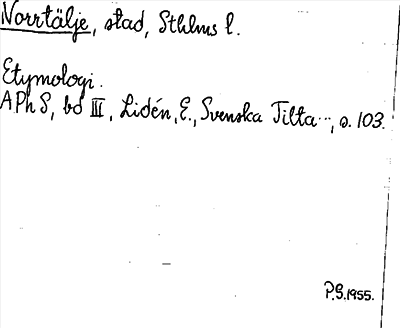 Norrtälje, stad, Sthlms l.
Etymologi.
APhS, bd III, Lidén, E., Svenska Tilta..., s. 103.
P.S. 1955.